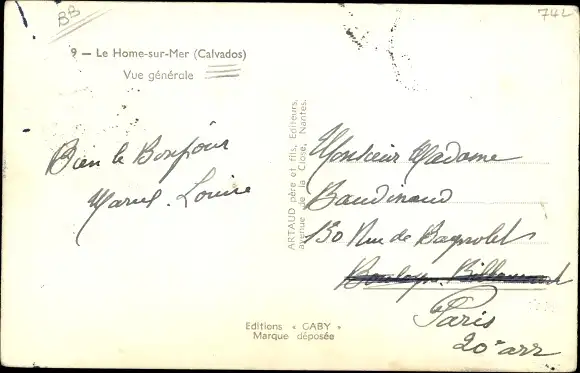 BB
742
9 — Le Home-sur-Mer (Calvados)
Vue générale
Bien le Bonjour
Marcel. Louise
ARTAUD père et fils, Editeurs,
avenue de la Close, Nantes.
Monsieur Madame
Baudinaud
150 Rue de Bagnolet
Boulogne Billancourt
Paris
20e arr
Editions « GABY »
Marque déposée